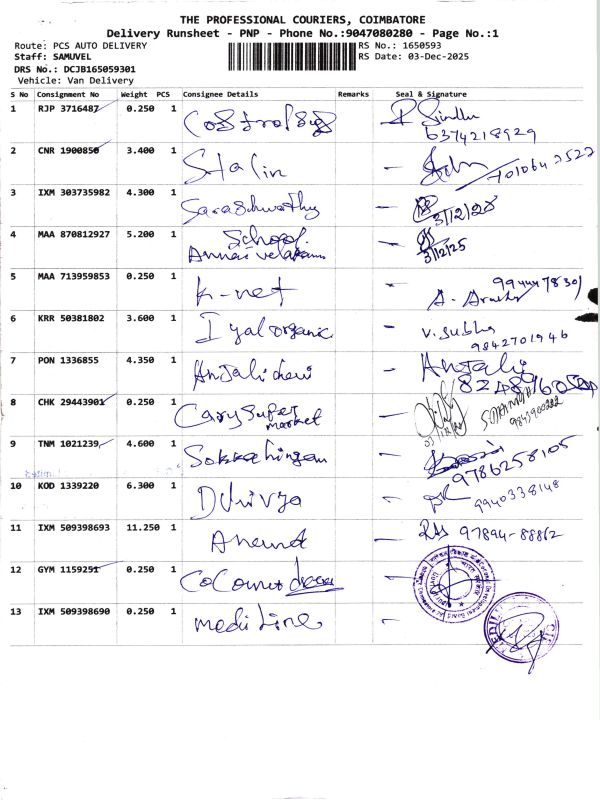 THE PROFESSIONAL COURIERS, COIMBATORE
Delivery Runsheet - PNP - Phone No.:9047080280 - Page No.:1
Route: PCS AUTO DELIVERY
RS No.: 1650593
Staff: SAMUVEL
RS Date: 03-Dec-2025
DRS No.: DCJB165059301
Vehicle: Van Delivery
S No Consignment No Weight PCS Consignee Details Remarks Seal & Signature
1 RJP 3716487 0.250 1 Sindhu
6374218929
2 CNR 1900850 3.400 1 Stalin
3 IXM 303735982 4.300 1 Sarashwathy 3/12/25
4 MAA 870812927 5.200 1 School
Annai velakanni 3/12/25
5 MAA 713959853 0.250 1 K-net A.
6 KRR 50381802 3.600 1 Iyal organic V. Subha
9842701946
7 PON 1336855 4.350 1 Anjali devi Anjali
8 CHK 29443901 0.250 1 Cary super
market
9 TNM 1021239 4.600 1 9786258105
10 KOD 1339220 6.300 1 Dhivya 9940338148
11 IXM 509398693 11.250 1 Anand 97894-88862
12 GYM 1159251 0.250 1 Coconut
13 IXM 509398690 0.250 1 mediline